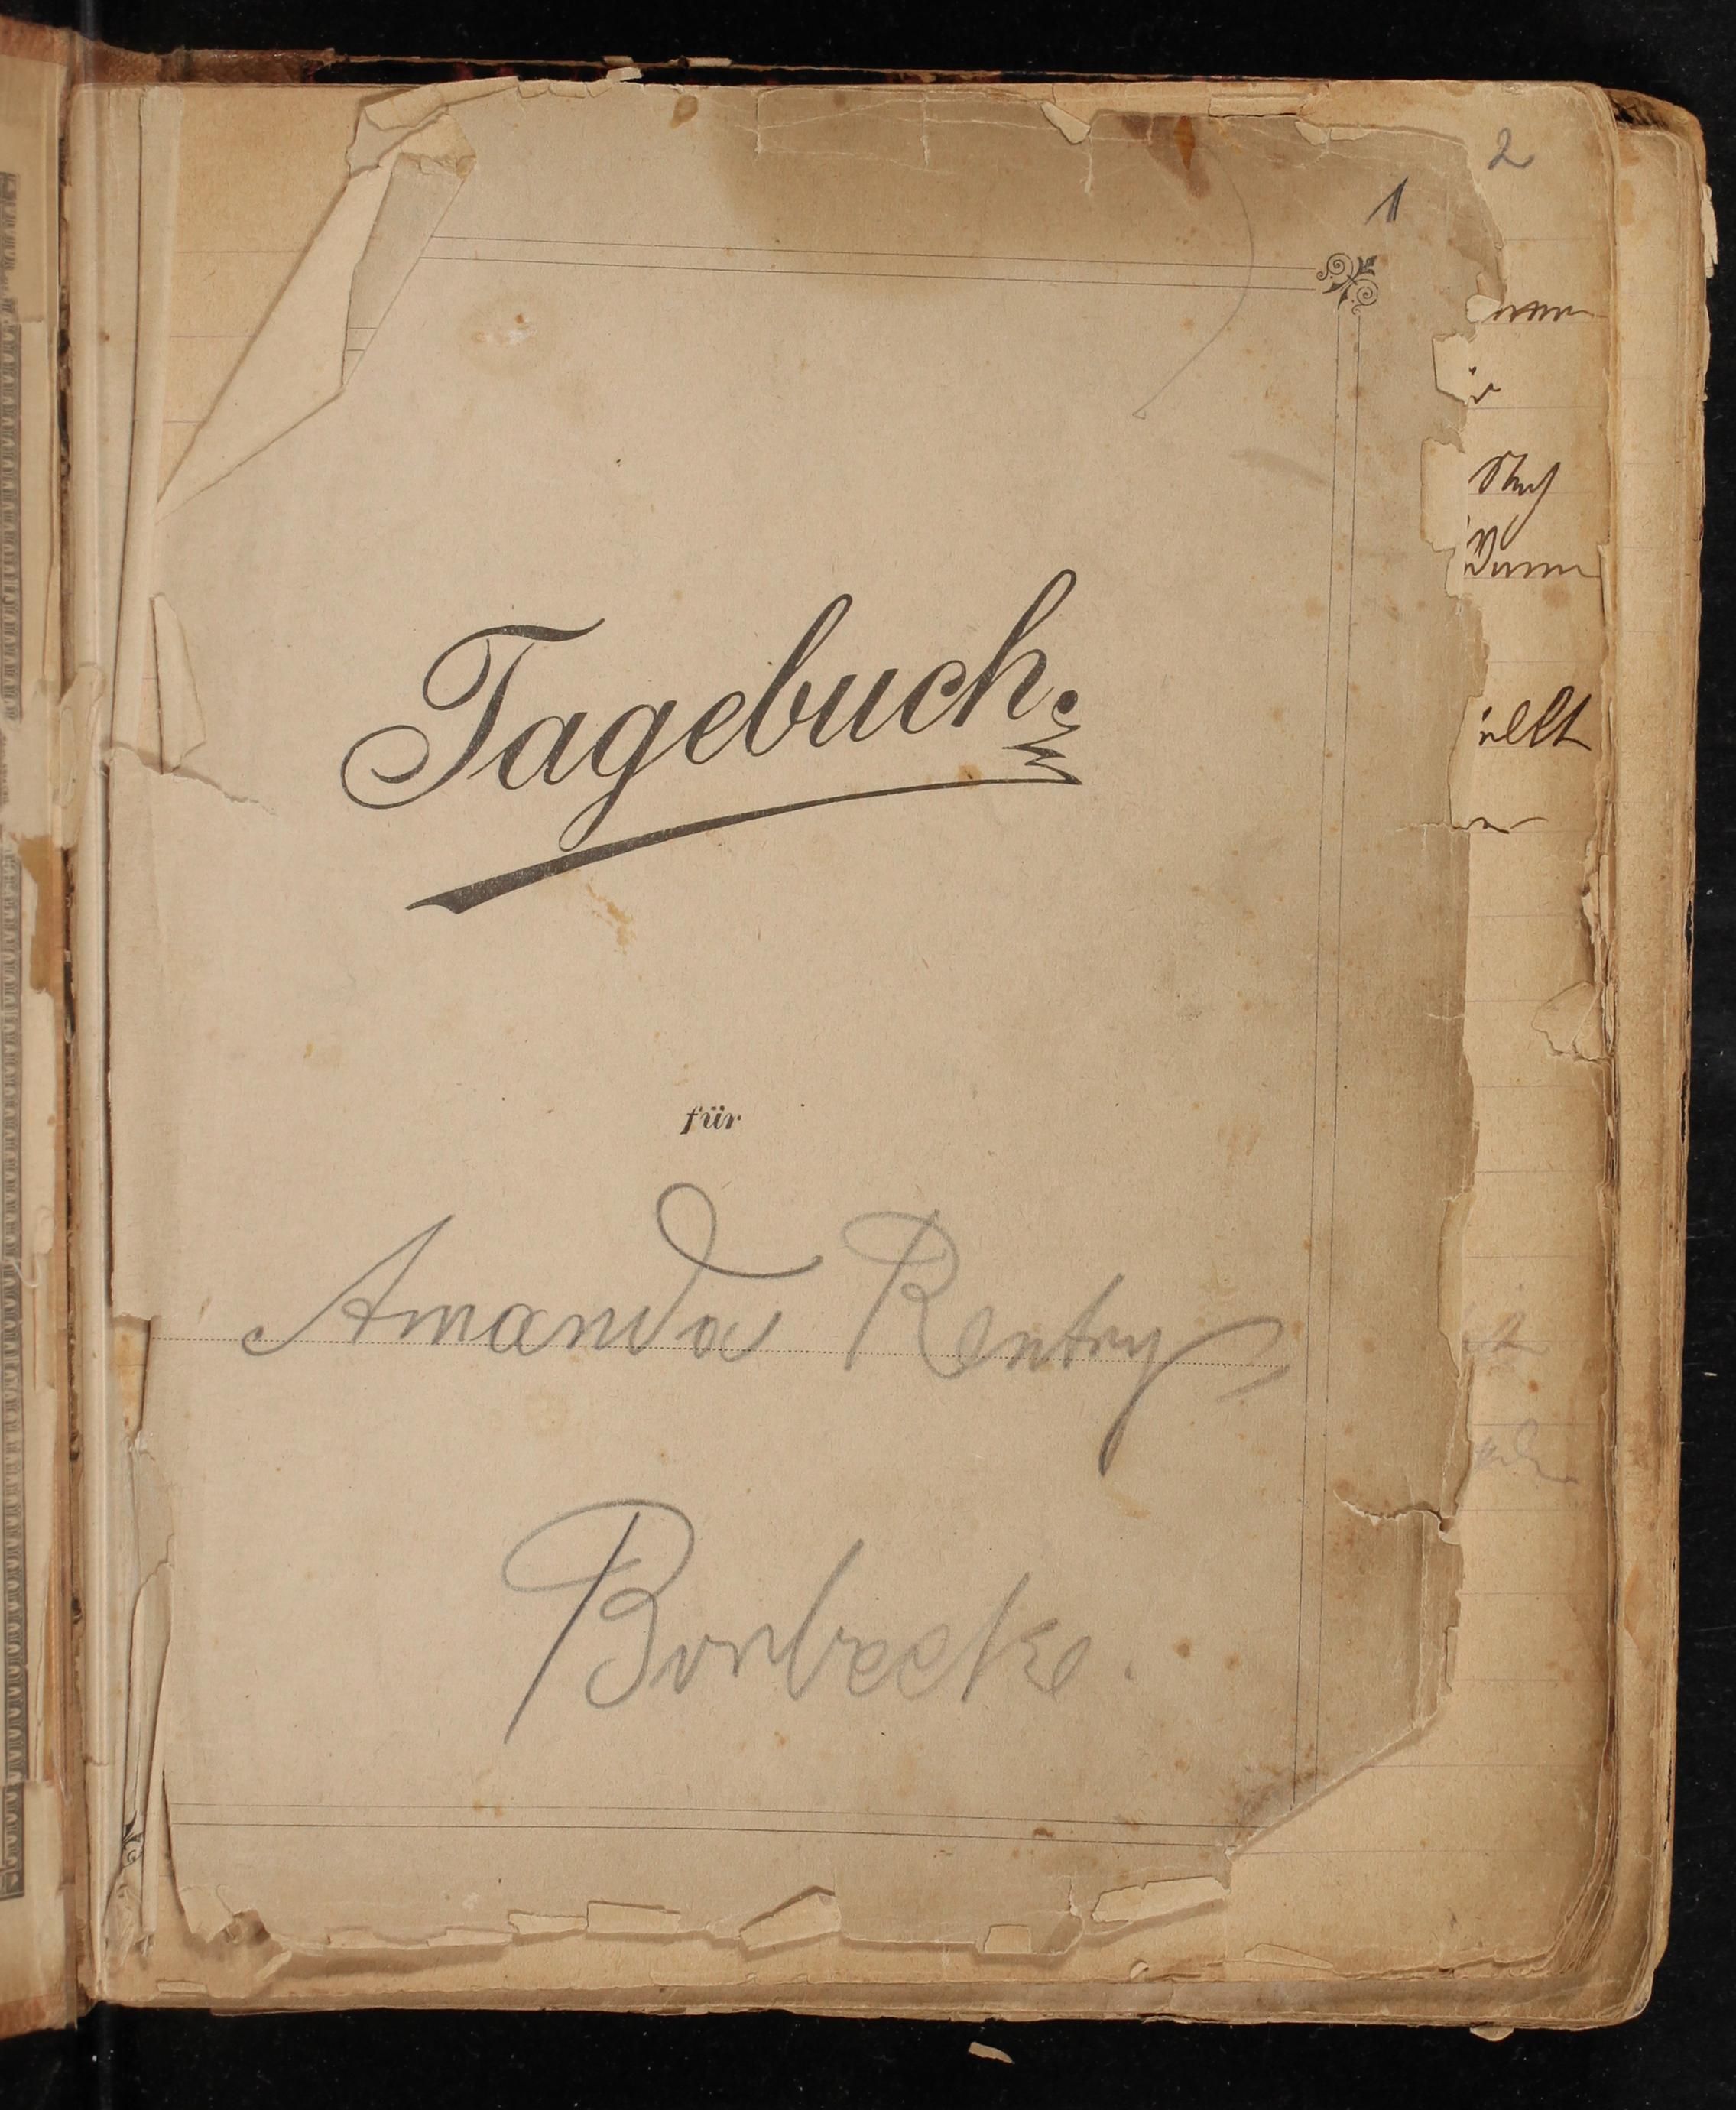 2
1
Tagebuch.
für
Amanda Rentry
Borbecke.